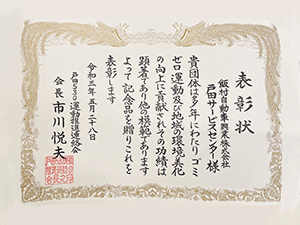 表彰状
飯村自動車興業株式会社
戸田サービスセンター様
貴団体は多年にわたりゴミ
ゼロ運動及び地域の環境美化
の向上に貢献されその功績は
顕著であり他の模範であります
よって記念品を贈りこれを
表彰します
令和三年五月二十八日
戸田530運動推進連絡会
会長 市川悦夫